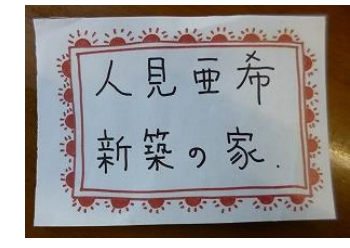 人見亜希
新築の家.